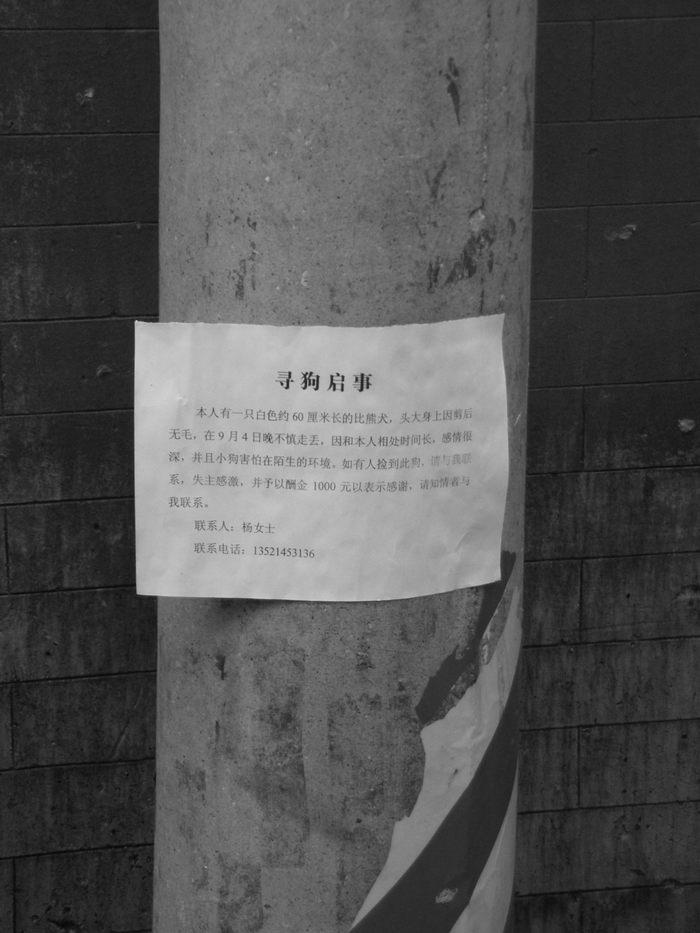 寻狗启事
本人有一只白色约60厘米长的比熊犬，头大身上因剪后
无毛，在9月4日晚不慎走丢，因和本人相处时间长，感情很
深，并且小狗害怕在陌生的环境。如有人捡到此狗，请与我联
系，失主感激，并予以酬金 1000 元以表示感谢，请知情者与
我联系。
联系人：杨女士
联系电话：13521453136